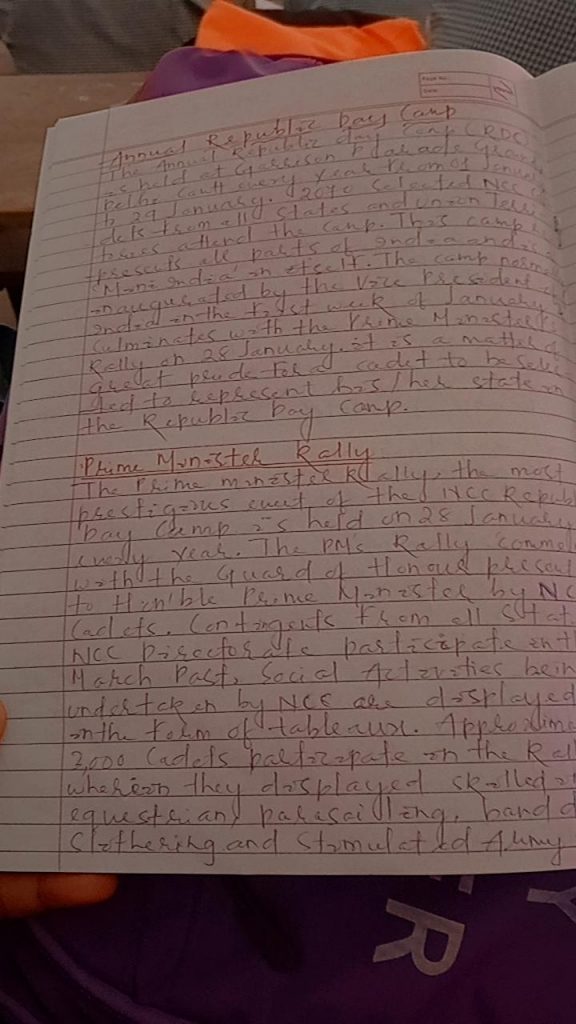 Page No.
Date
Annual Republic Day Camp
The Annual Republic day Camp (RDC)
is held at Garrison Parade Ground
Delhi Cantt every year from 01 Januar
to 29 January. 2070 selected NCC C
dets from all states and union Terri
tories attend the camp. This camp r
presents all parts of India and is
'Mini India' in itself. The camp norma
inaugurated by the Vice President
India in the first week of January
culminates with the Prime Minister's
Rally on 28 January. it is a matter of
great pride for a cadet to be sele
ted to represent his/her state in
the Republic Day Camp.
Prime Minister Rally
The Prime minister Rally, the most
prestigious event of the NCC Repub
Day Camp is held on 28 January
every year. The PM's Rally comme
with the Guard of Honour present
to Hon'ble Prime Minister by NC
Cadets. Contingents from all Stat
NCC Directorate participate in t
March Past, Social Activities bein
undertaken by NCC are displayed
in the form of tableaux. Approxima
2,000 Cadets participate in the Ral
wherein they displayed skilled
equestrian, parasailing, band d
Slithering and Stimulated Army
ER